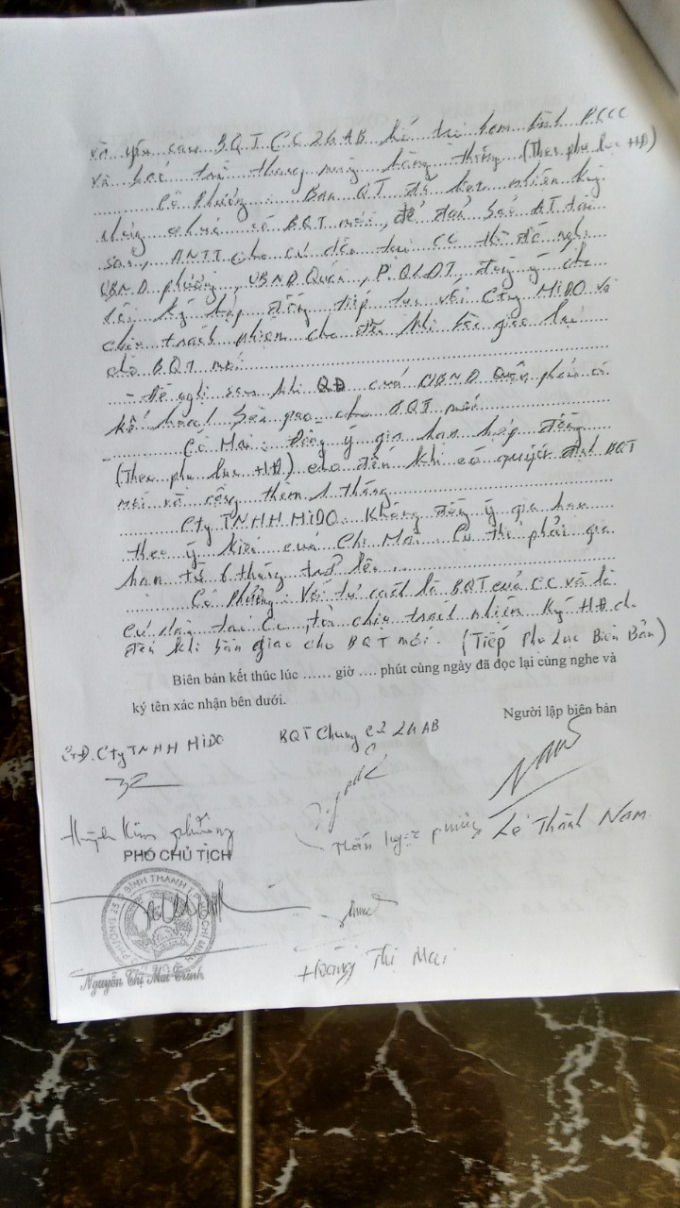 và yêu cầu BQT CC 24AB PCCC
và tháng hàng tháng (Theo phụ lục HĐ)
Cô Phượng: Ban QT đã hết nhiệm kỳ
nhưng chưa có BQT mới, để đảm bảo AT tài
sản, ANTT cho cư dân tại CC thì đề nghị
UBND phường, UBND Quận, P.QLĐT, đồng ý cho
ký hợp đồng tiếp tục với Công MIDO và
chịu trách nhiệm cho đến khi bàn giao lại
cho BQT mới
- Đề nghị sau khi QĐ của UBND Quận phải có
kế hoạch bàn giao cho BQT mới
Cô Mai: Đồng ý gia hạn hợp đồng
(Theo phụ lục HĐ) cho đến khi có quyết định BQT
mới và cộng thêm 1 tháng
Cty TNHH MIDO: Không đồng ý gia hạn
theo ý kiến của Chị Mai. Cụ thể phải gia
hạn từ 6 tháng trở lên
Cô Phượng: Với tư cách là BQT của CC và là
cư dân tại CC, tôi chịu trách nhiệm Ký HĐ cho
đến khi bàn giao cho BQT mới. (Tiếp Phụ Lục Biên Bản)
Biên bản kết thúc lúc ...... giờ .... phút cùng ngày đã đọc lại cùng nghe và
ký tên xác nhận bên dưới.
Người lập biên bản
Cty TNHH MIDO
BQT Chung cư 24AB
Huỳnh Kim Phượng
Lê Thành Nam
PHÓ CHỦ TỊCH
Nguyễn Thị Mai Trinh
Hoàng Thị Mai